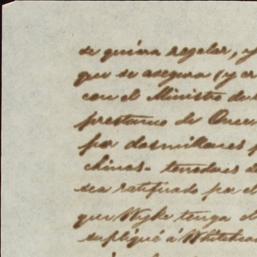 se quiera arreglar, y
que se asegura (y cr
con el Ministro de
prestamo de Once
por dos millares
chinas - tenedores d
sea ratificado por el
que Wyke tenga el
supliqué á Whitehea